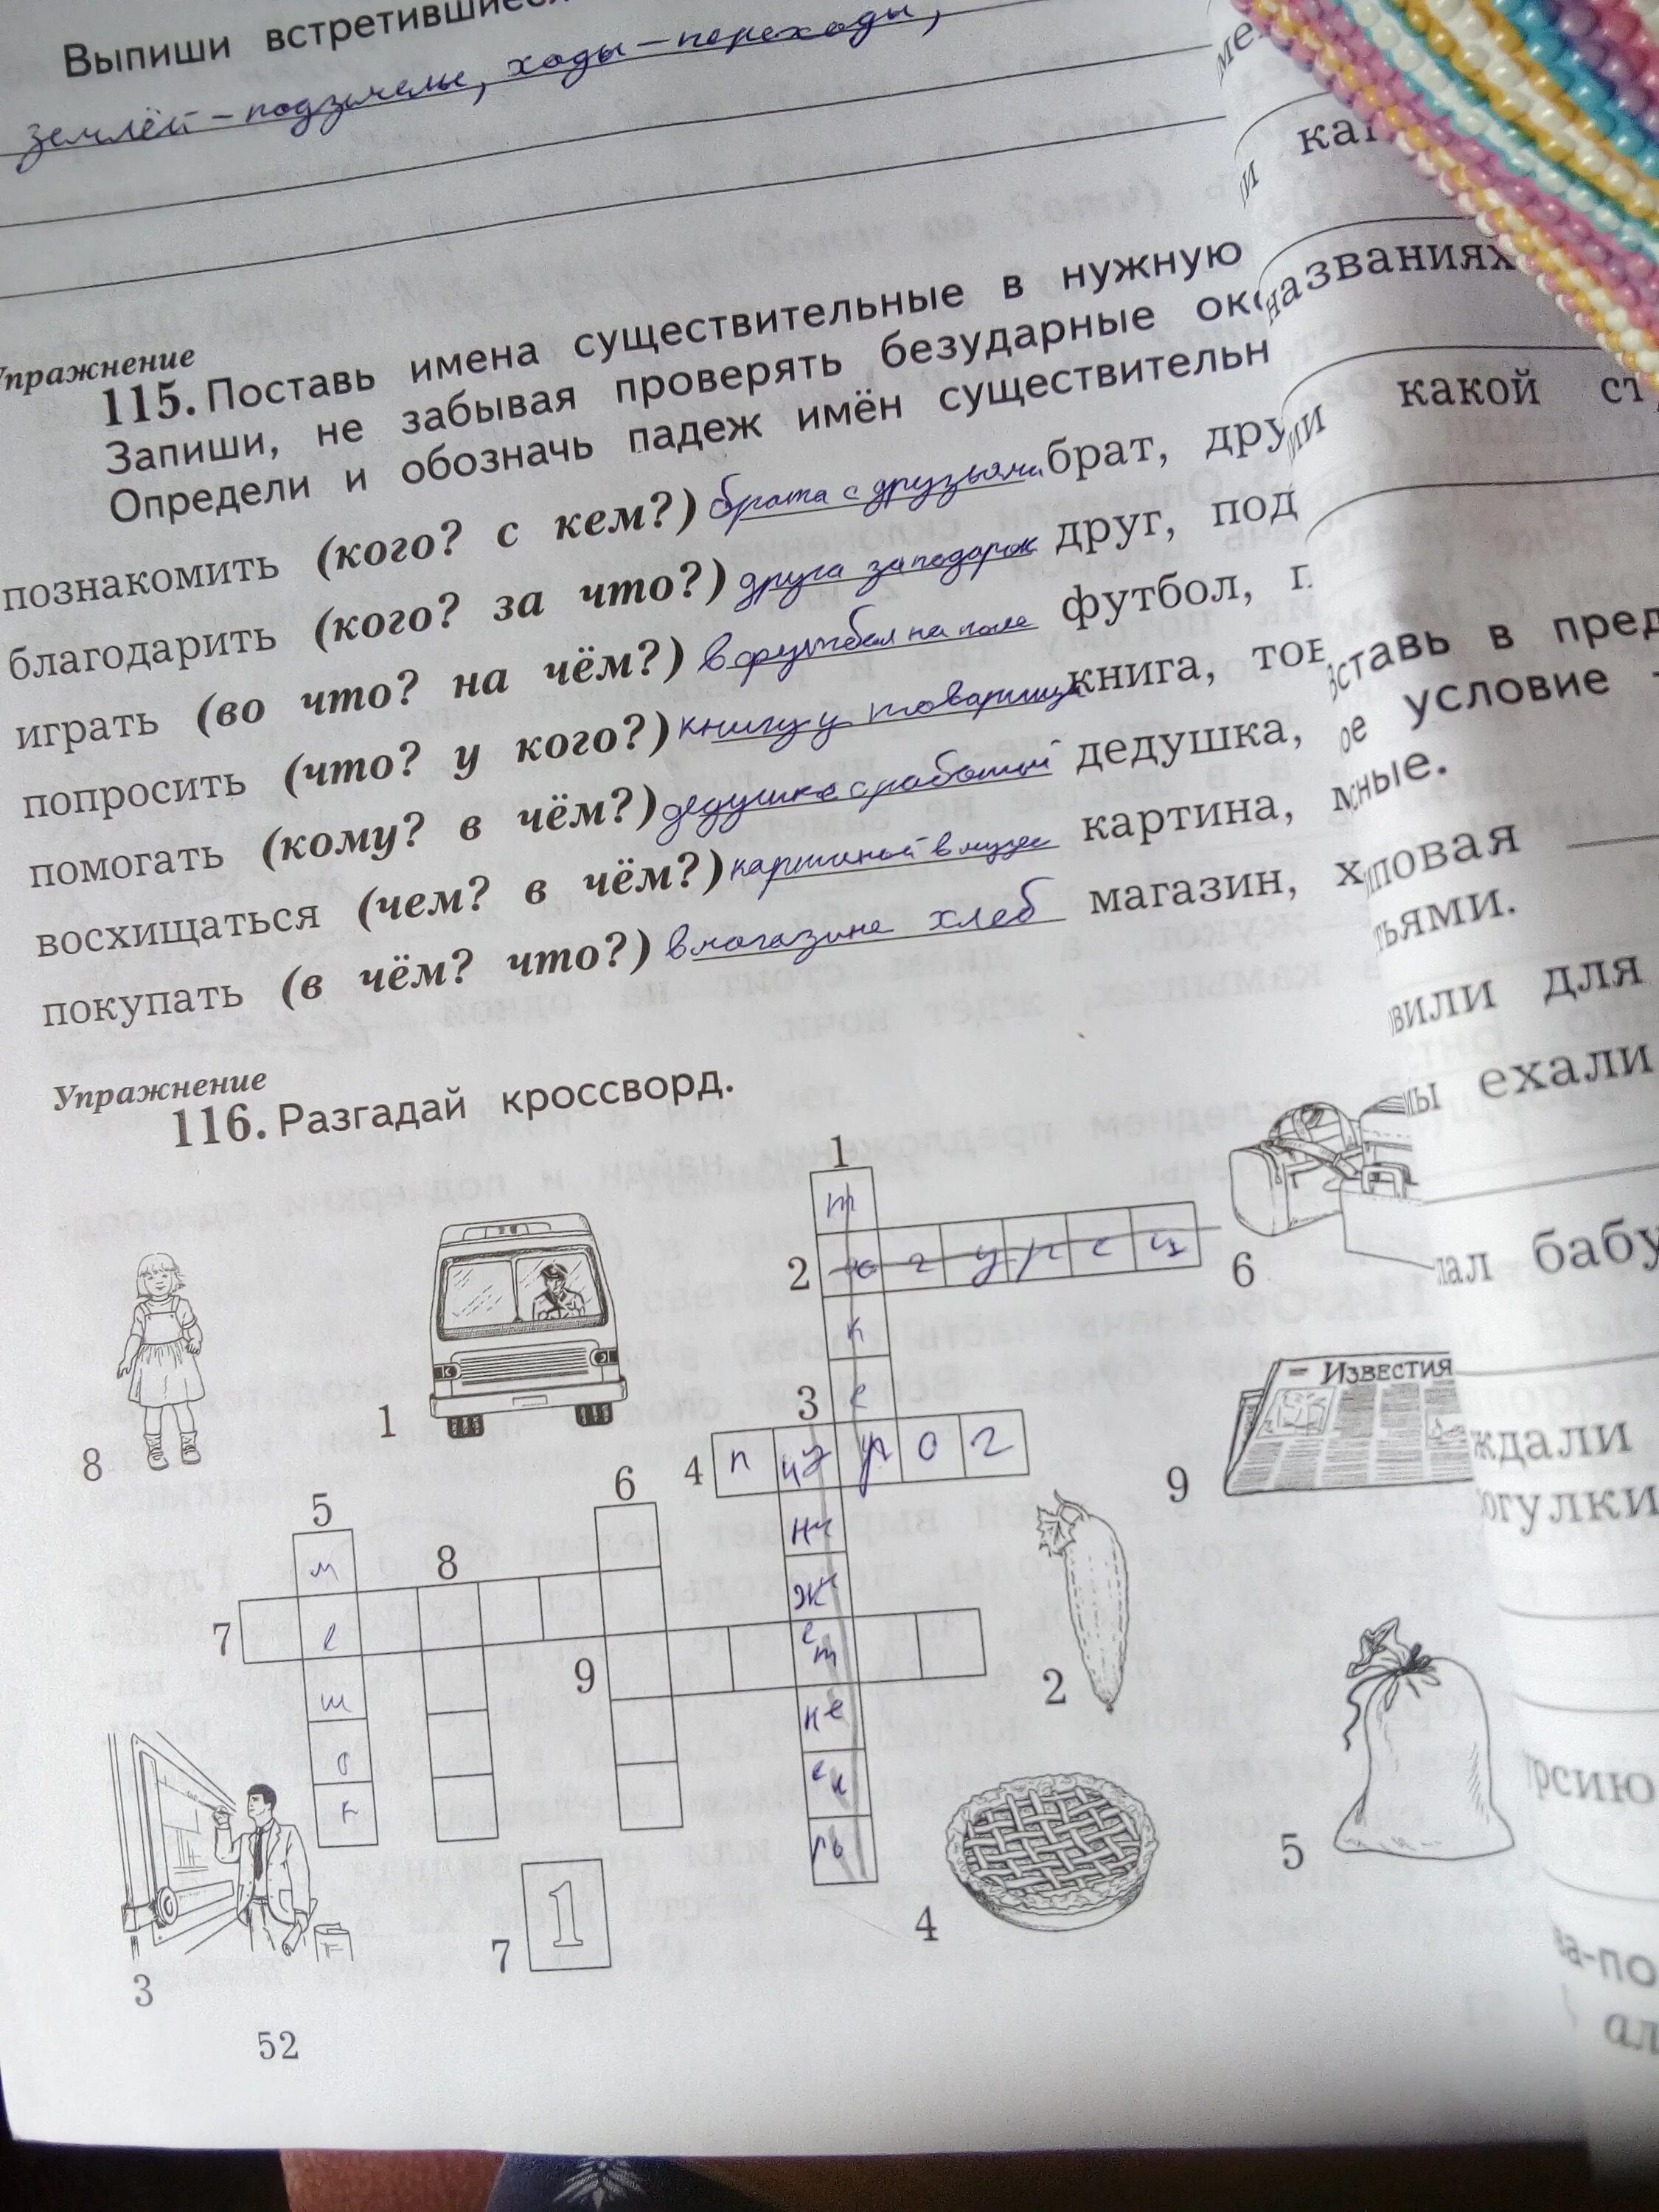 Выпиши встретившиеся
землёй – подземелье, ходы – переходы,
Упражнение
115. Поставь имена существительные в нужную
Запиши, не забывая проверять безударные око
Определи и обозначь падеж имён существительн
познакомить (кого? с кем?) брата с друзьями брат, дру
благодарить (кого? за что?) друга за подарок друг, под
играть (во что? на чём?) в футбол на поле футбол, п
попросить (что? у кого?) книгу у товарища книга, тов
помогать (кому? в чём?) дедушке с работой дедушка,
восхищаться (чем? в чём?) картиной в музее картина, м
покупать (в чём? что?) в магазине хлеб магазин, х
Упражнение
116. Разгадай кроссворд.
1
т
2 о г у р е ц
к
3 е
4 п и р о г
5
м
6
8
7 е
9
ш
о
к
8
1
6
9
ИЗВЕСТИЯ
2
5
4
3
7
1
52
ме
и как
названиях
ми какой ст
вставь в пред
ое условие
ные.
повая
тьями.
вили для
ы ехали
лал бабу
ждали
огулки
рсию
ва-по
ал